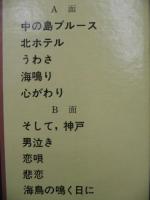 A 面
中の島ブルース
北ホテル
うわさ
海鳴り
心がわり
B 面
そして，神戸
男泣き
恋唄
悲恋
海鳥の鳴く日に